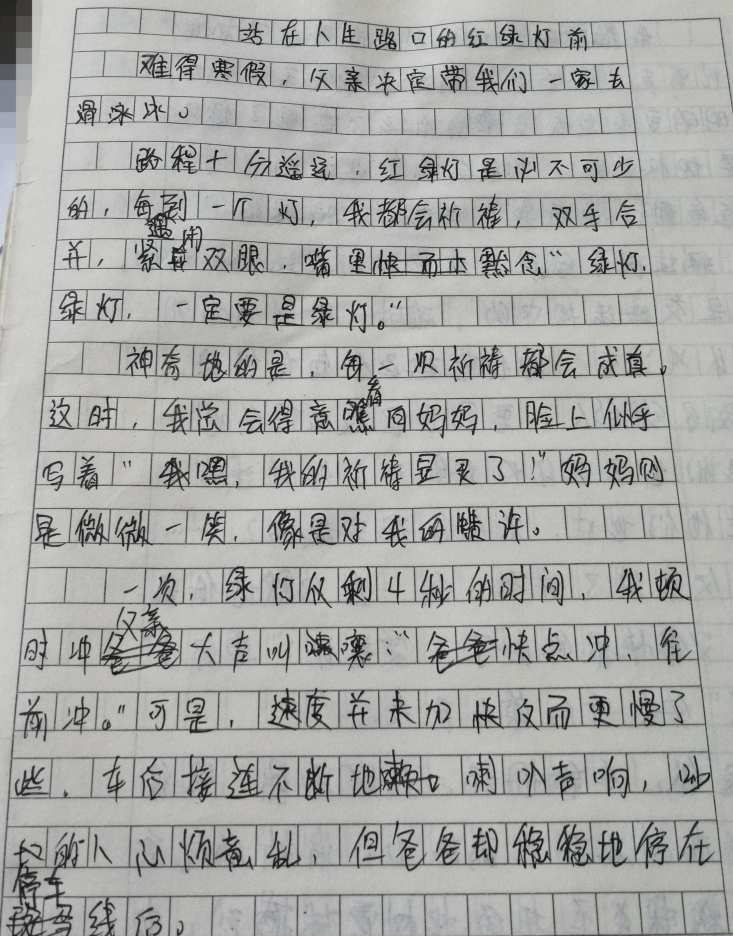 站在人生路口的红绿灯前
难得寒假，父亲决定带我们一家去
滑冰。
路程十分遥远，红绿灯是必不可少
的，每到一个灯，我都会祈祷，双手合
并，紧闭双眼，嘴里默念“绿灯，
绿灯，一定要是绿灯。”
神奇地的是，每一次祈祷都会成真。
这时，我总会得意看向妈妈，脸上似乎
写着“我嘿，我的祈祷显灵了！”妈妈则
是微微一笑，像是对我的赞许。
一次，绿灯仅剩4秒的时间，我顿
时冲父亲大声叫嚷：“快点冲，往
前冲。”可是，速度并未加快反而更慢了
些，车后接连不断地喇叭声响，吵
的人心烦意乱，但爸爸却稳稳地停在
停车线后。